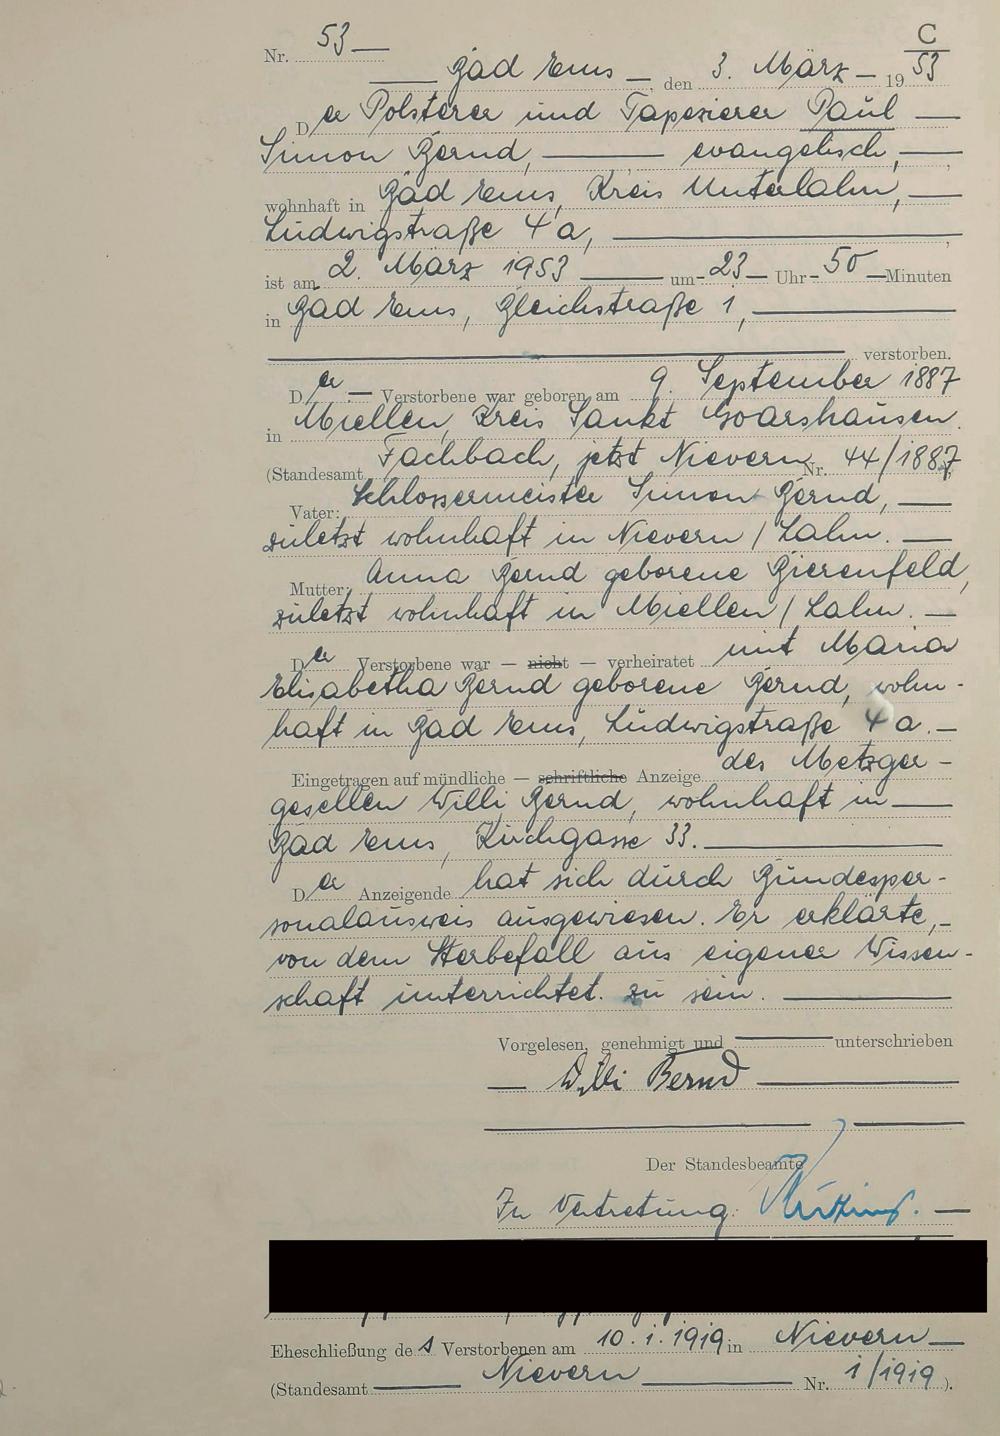 C
Nr. 53
Bad Ems, den 3. März 1953
Der Polsterer und Tapezierer Paul
Simon Bernd, evangelisch,
wohnhaft in Bad Ems, Kreis Unterlahn,
Ludwigstraße 4a,
ist am 2. März 1953 um 23 Uhr 50 Minuten
in Bad Ems, Bleichstraße 1,
verstorben.
Der Verstorbene war geboren am 9. September 1887
in Miellen, Kreis Sankt Goarshausen.
(Standesamt Fachbach, jetzt Nievern Nr. 44/1887
Vater: Schlossermeister Simon Bernd,
zuletzt wohnhaft in Nievern / Lahn.
Mutter: Anna Bernd geborene Bierenfeld,
zuletzt wohnhaft in Miellen / Lahn.
Der Verstorbene war — nicht — verheiratet mit Maria
Elisabetha Bernd geborene Bernd, wohn-
haft in Bad Ems, Ludwigstraße 4a.
Eingetragen auf mündliche — schriftliche Anzeige des Metzger-
gesellen Willi Bernd, wohnhaft in
Bad Ems, Kirchgasse 33.
Der Anzeigende hat sich durch Bundesper-
sonalausweis ausgewiesen. Er erklärte,
von dem Sterbefall aus eigener Wissen-
schaft unterrichtet zu sein.
Vorgelesen, genehmigt und unterschrieben
Willi Bernd
Der Standesbeamte
In Vertretung:
Eheschließung des Verstorbenen am 10.1.1919 in Nievern
(Standesamt Nievern Nr. 1/1919).